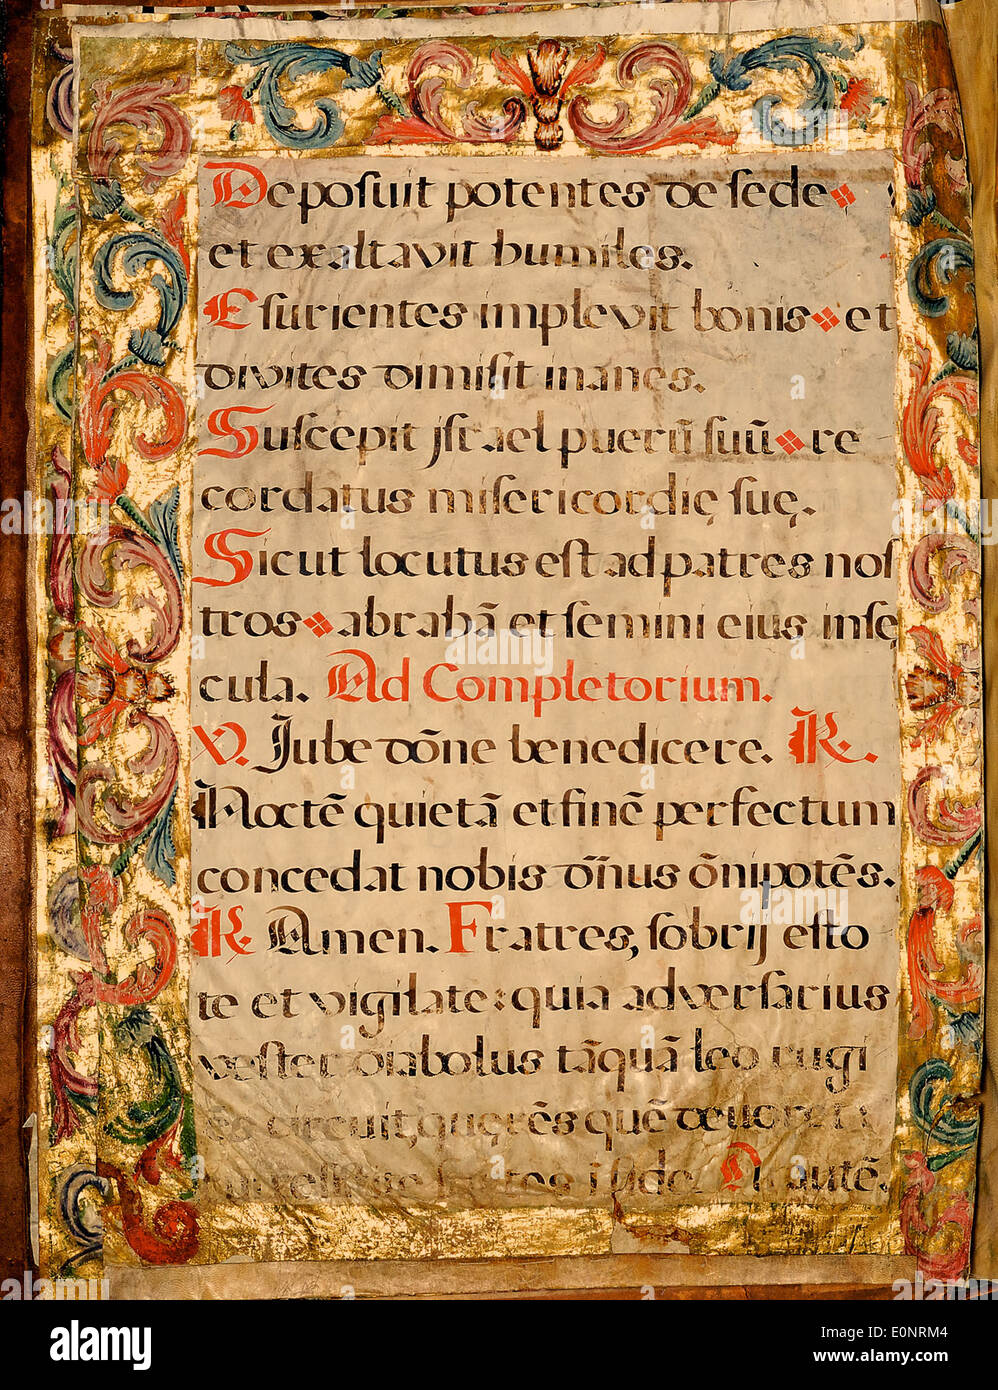 Deposuit potentes de sede
et exaltavit humiles.
Esurientes implevit bonis et
divites dimisit inanes.
Suscepit jsrael puerū suū re
cordatus misericordię suę.
Sicut locutus est ad patres nos
tros abrahā et semini eius in sę
cula. Ad Completorium.
V. Jube dōne benedicere. R.
Noctē quietā et finē perfectum
concedat nobis dn̄us ōnipotēs.
R. Amen. Fratres, sobrij esto
te et vigilate: quia adversarius
vester diabolus tāquā leo rugi
ēs circuit, quęrēs quē devoret
fortes i fide. autē.
alamy
Image ID: E0NRM4
www.alamy.com